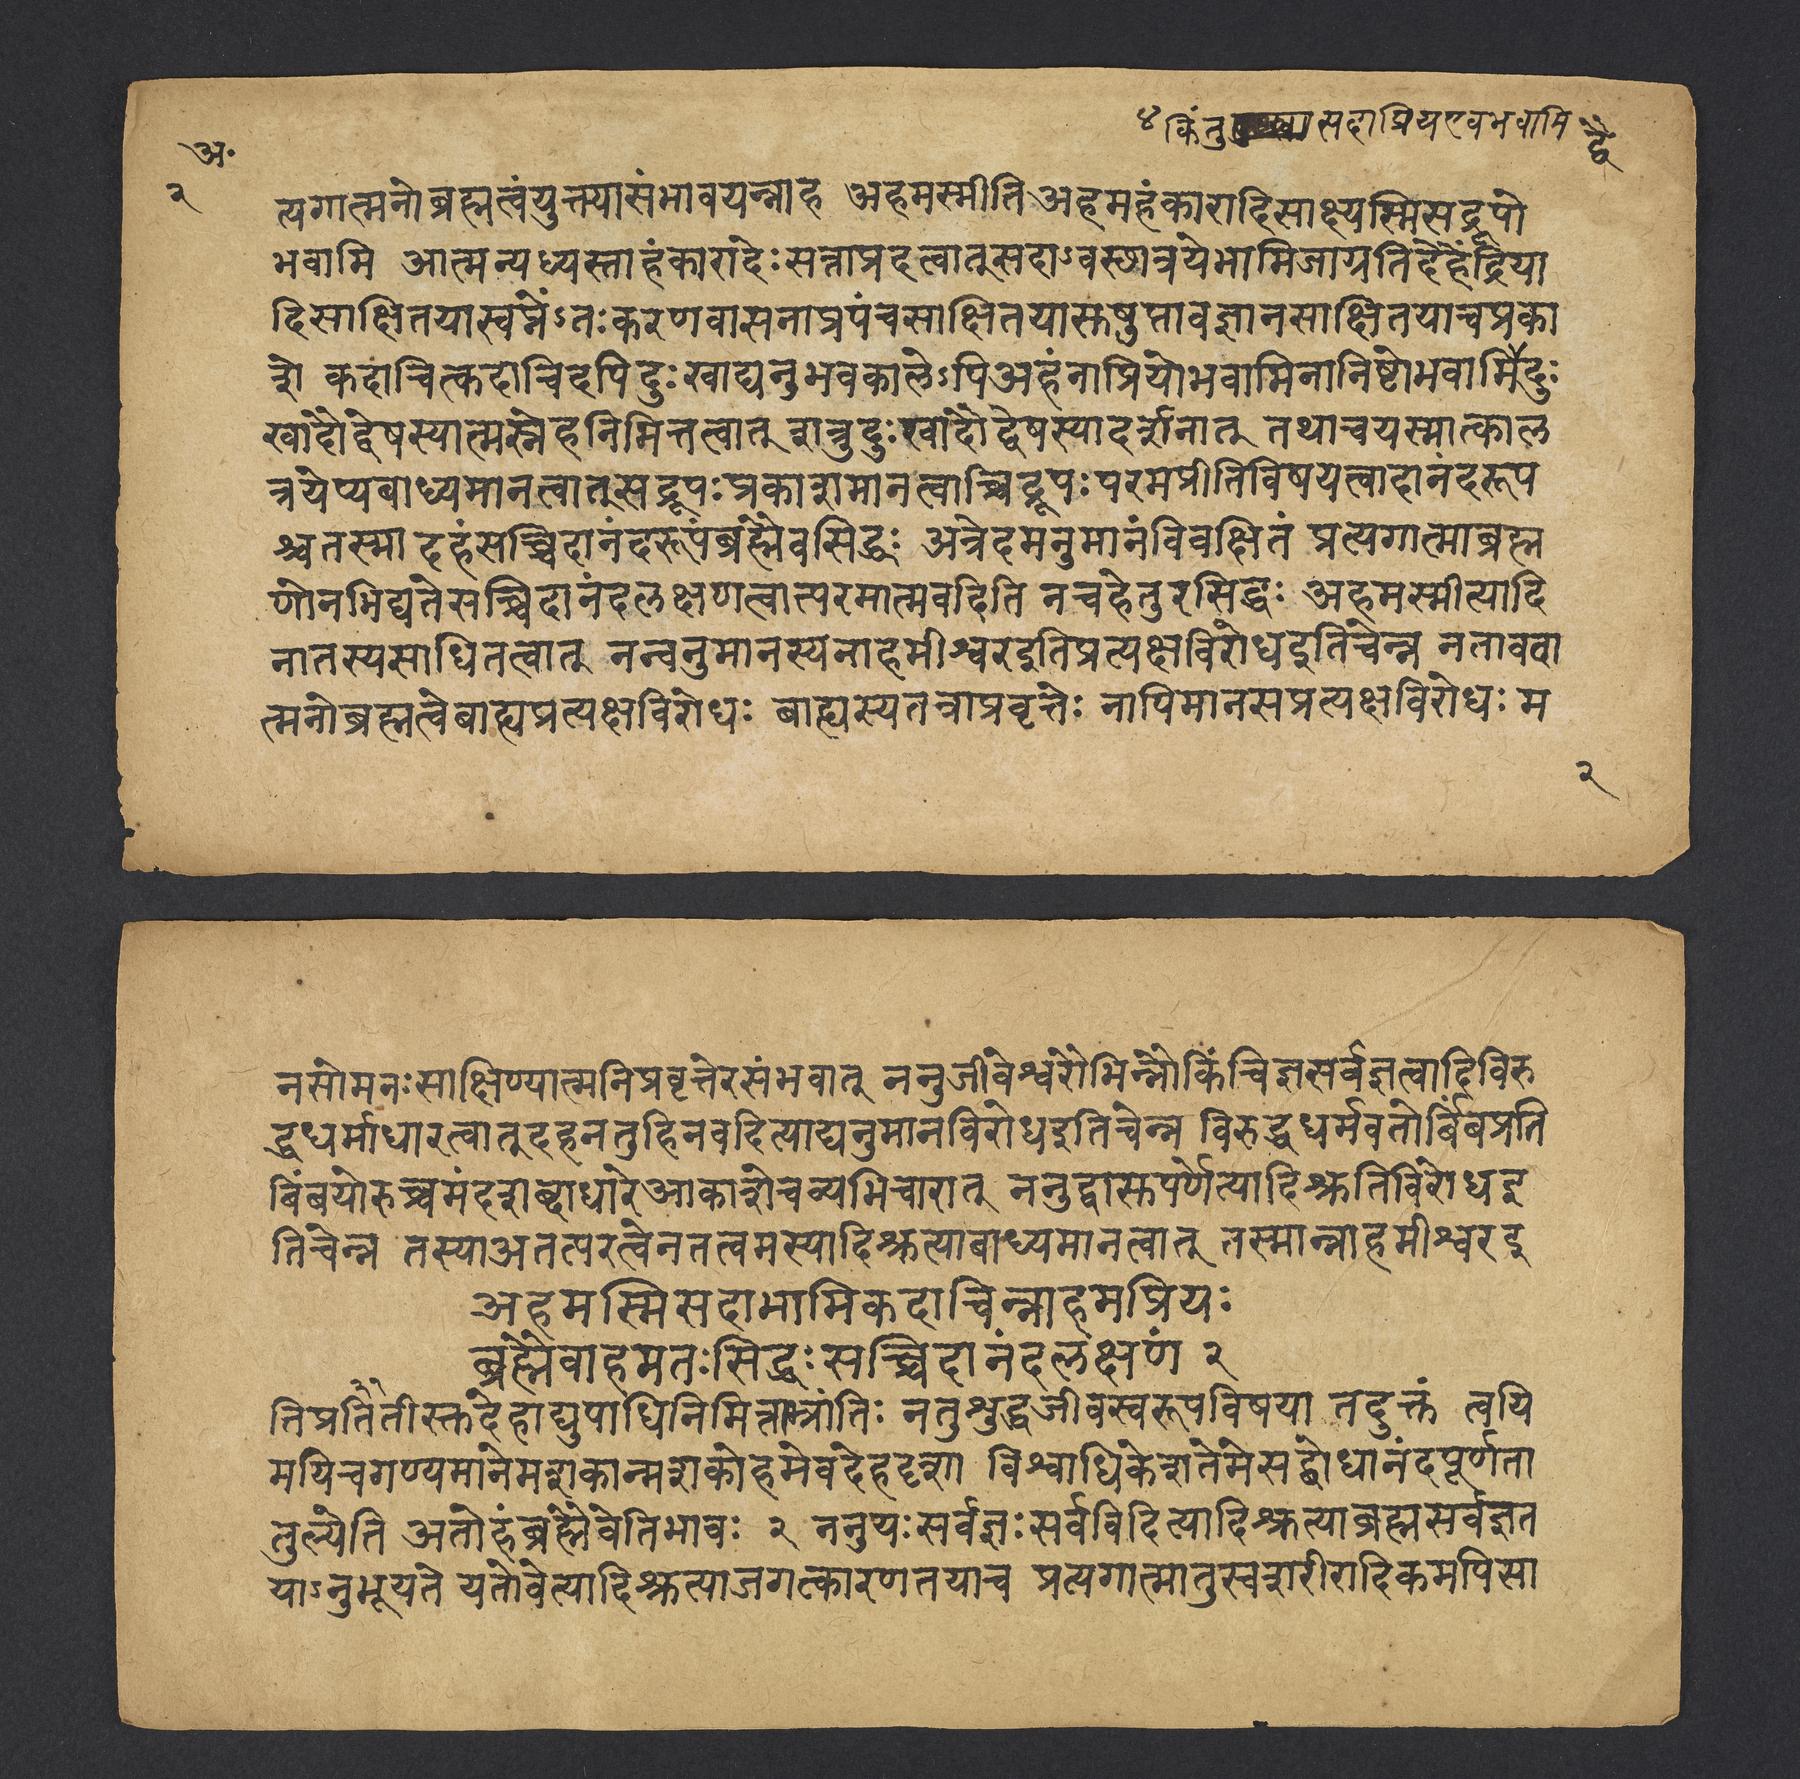 ४ किंतु सदाप्रियएवभवामि
अ॰
२
त्यगात्मनोब्रह्मत्वंयुक्त्यासंभावयन्नाह अहमस्मीति अहमहंकारादिसाक्ष्यस्मिसद्रूपो
भवामि आत्मन्यध्यस्ताहंकारादेःसत्ताप्रदत्वात्सदाऽवस्थात्रयेभामिजाग्रतिदेहेंद्रिया
दिसाक्षितयास्वप्नेंऽतःकरणवासनाप्रपंचसाक्षितयासुषुप्तावज्ञानसाक्षितयाचप्रका
शे कदाचित्कदाचिदपिदुःखाद्यनुभवकालेऽपिअहंनाप्रियोभवामिनानिष्टोभवामिदुः
खादौद्वेषस्यात्मस्नेहनिमित्तत्वात् शत्रुदुःखादौद्वेषस्यादर्शनात् तथाचयस्मात्काल
त्रयेप्यबाध्यमानत्वात्सद्रूपःप्रकाशमानत्वाच्चिद्रूपःपरमप्रीतिविषयत्वादानंदरूप
श्चतस्मादहंसच्चिदानंदरूपंब्रह्मैवसिद्धः अत्रेदमनुमानंविवक्षितं प्रत्यगात्माब्रह्म
णोनभिद्यतेसच्चिदानंदलक्षणत्वात्परमात्मवदिति नचहेतुरसिद्धः अहमस्मीत्यादि
नातस्यसाधितत्वात् नन्वनुमानस्यनाहमीश्वरइतिप्रत्यक्षविरोधइतिचेन्न नतावदा
त्मनोब्रह्मत्वेबाह्यप्रत्यक्षविरोधः बाह्यस्यतत्राप्रवृत्तेः नापिमानसप्रत्यक्षविरोधः म
२
नसोमनःसाक्षिण्यात्मनिप्रवृत्तेरसंभवात् ननुजीवेश्वरौभिन्नौकिंचिज्ञसर्वज्ञत्वादिविरु
द्धधर्माधारत्वात्दहनतुहिनवदित्याद्यनुमानविरोधइतिचेन्न विरुद्धधर्मवतोर्बिंबप्रति
बिंबयोरुच्चमंदशब्दाधारेआकाशेचव्यभिचारात् ननुद्वासुपर्णेत्यादिश्रुतिविरोधइ
तिचेन्न तस्याअतत्परत्वेनतत्वमस्यादिश्रुत्याबाध्यमानत्वात् तस्मान्नाहमीश्वरइ
अहमस्मिसदाभामिकदाचिन्नाहमप्रियः
ब्रह्मैवाहमतःसिद्धःसच्चिदानंदलक्षणं २
तिप्रतीतीस्तुदेहाद्युपाधिनिमित्ताभ्रांतिः नतुशुद्धजीवस्वरूपविषया तदुक्तं त्वयि
मयिचगण्यमानेमशकान्मशकोहमेवदेहदृशा विश्वाधिकेशतेमेसद्बोधानंदपूर्णता
तुल्येति अतोहंब्रह्मैवेतिभावः २ ननुयःसर्वज्ञःसर्वविदित्यादिश्रुत्याब्रह्मसर्वज्ञत
याऽनुभूयते यतोवेत्यादिश्रुत्याजगत्कारणतयाच प्रत्यगात्मातुस्वशरीरादिकमपिसा